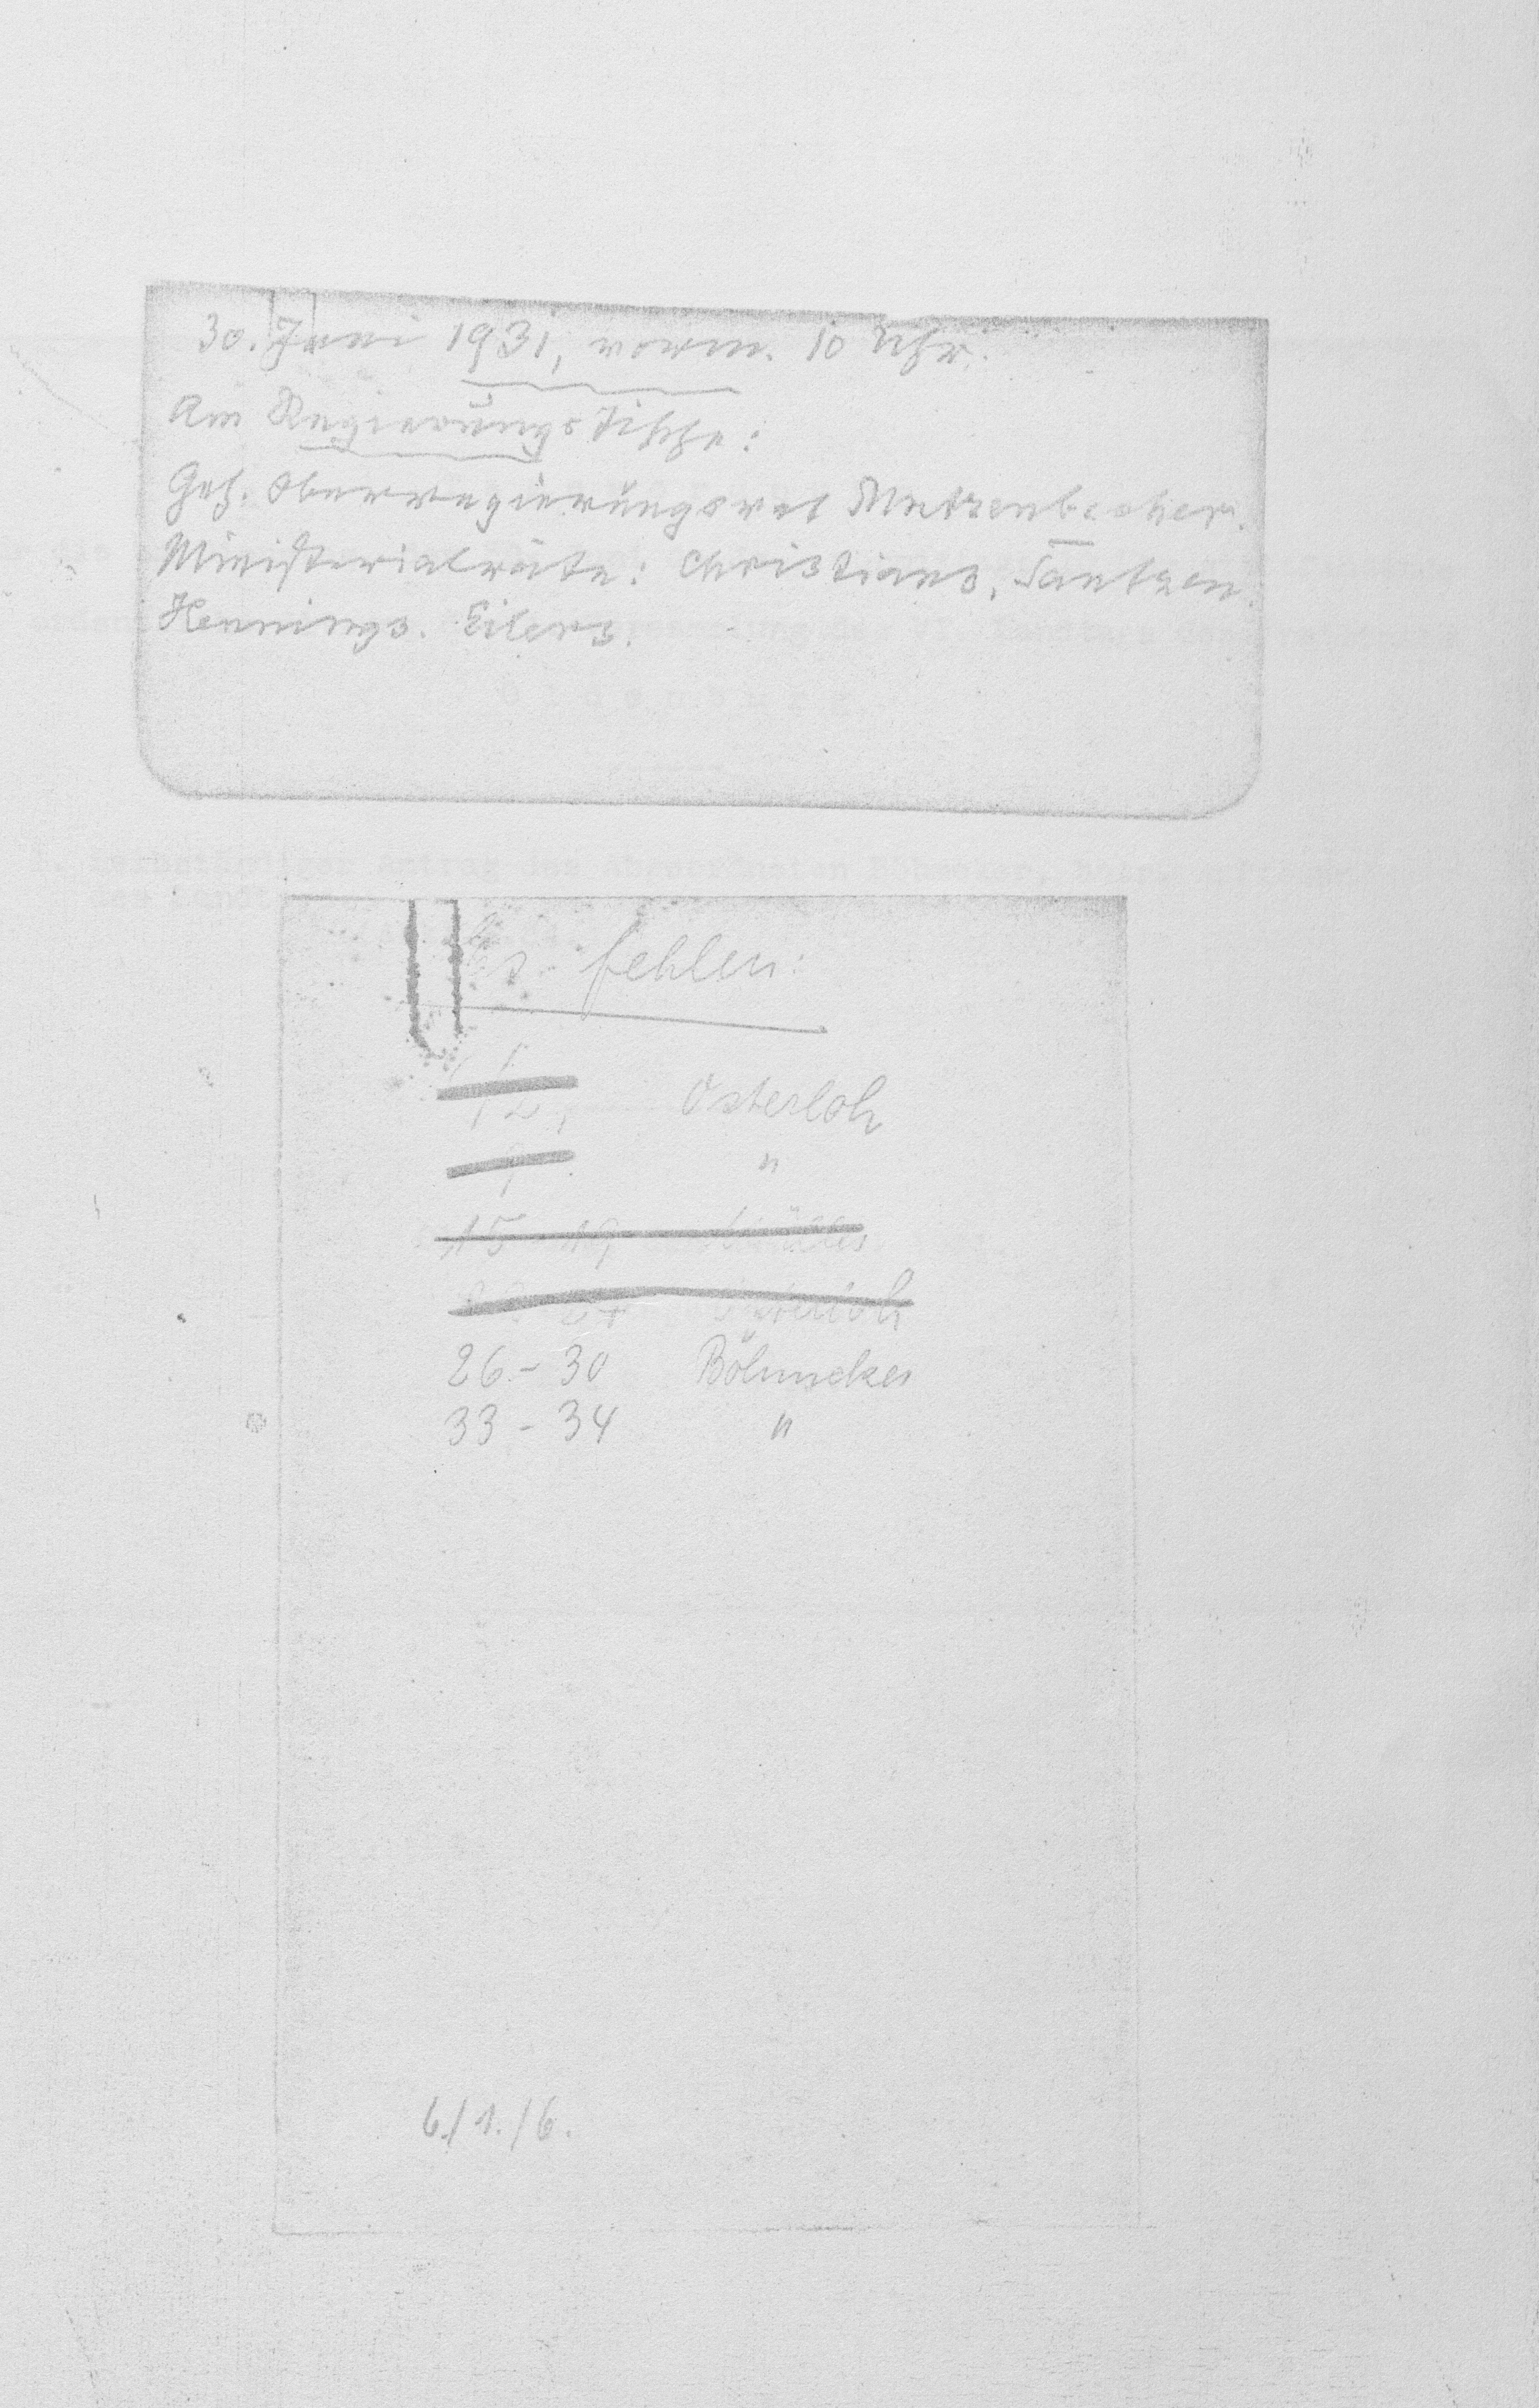 30. Juni 1931, vorm. 10 Uhr.
Am Regierungstische:
Geh. Oberregierungsrat Mutzenbecher.
Ministerialräte: Christians, Tantzen.
Hennings. Eilers.
Es fehlen:
12, Osterloh
9. "
15 19
24 Osterloh
26 - 30 Böhmcker
33 - 34 "
6./1./6.